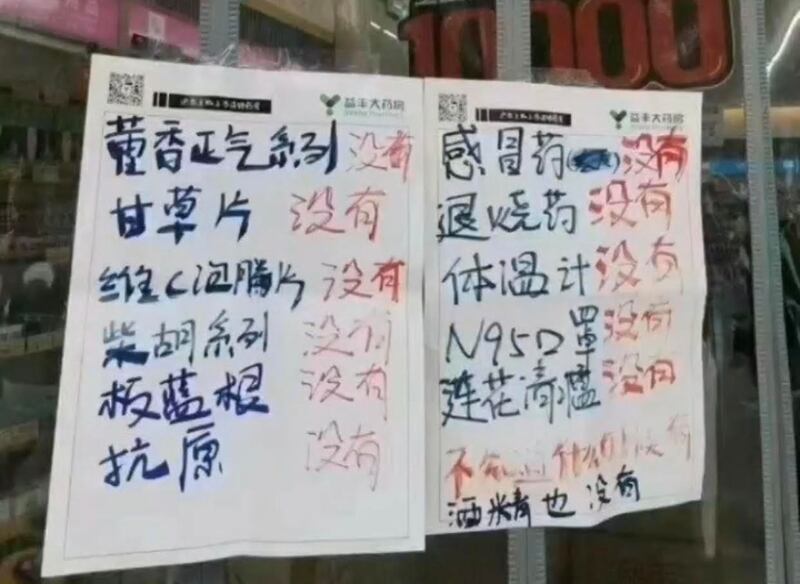 10000
益丰大药房
董香正气系列 没有
甘草片 没有
维C泡腾片 没有
柴胡系列 没有
板蓝根 没有
抗原 没有
益丰大药房
感冒药( ) 没有
退烧药 没有
体温计 没有
N95口罩 没有
莲花清瘟 没有
不用问 什么都没有
酒精也没有